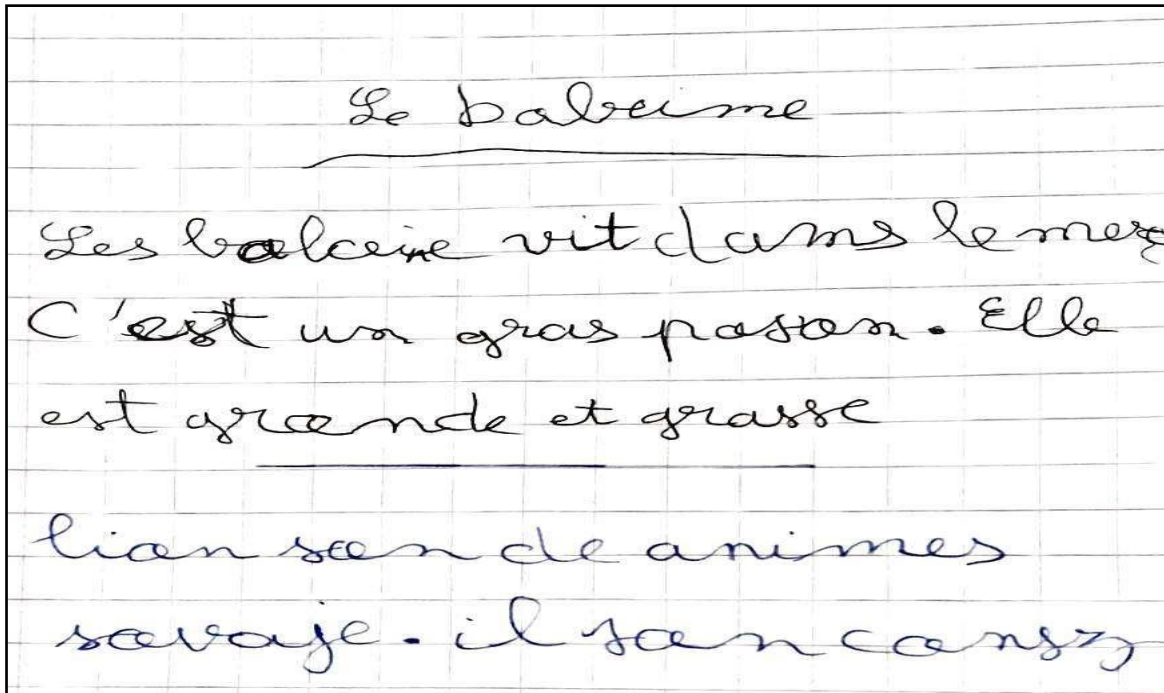 Le baleine
Les baleine vit dans le mer
C'est un gras poson. Elle
est grande et grasse
lion son de animes
sovaje. il son